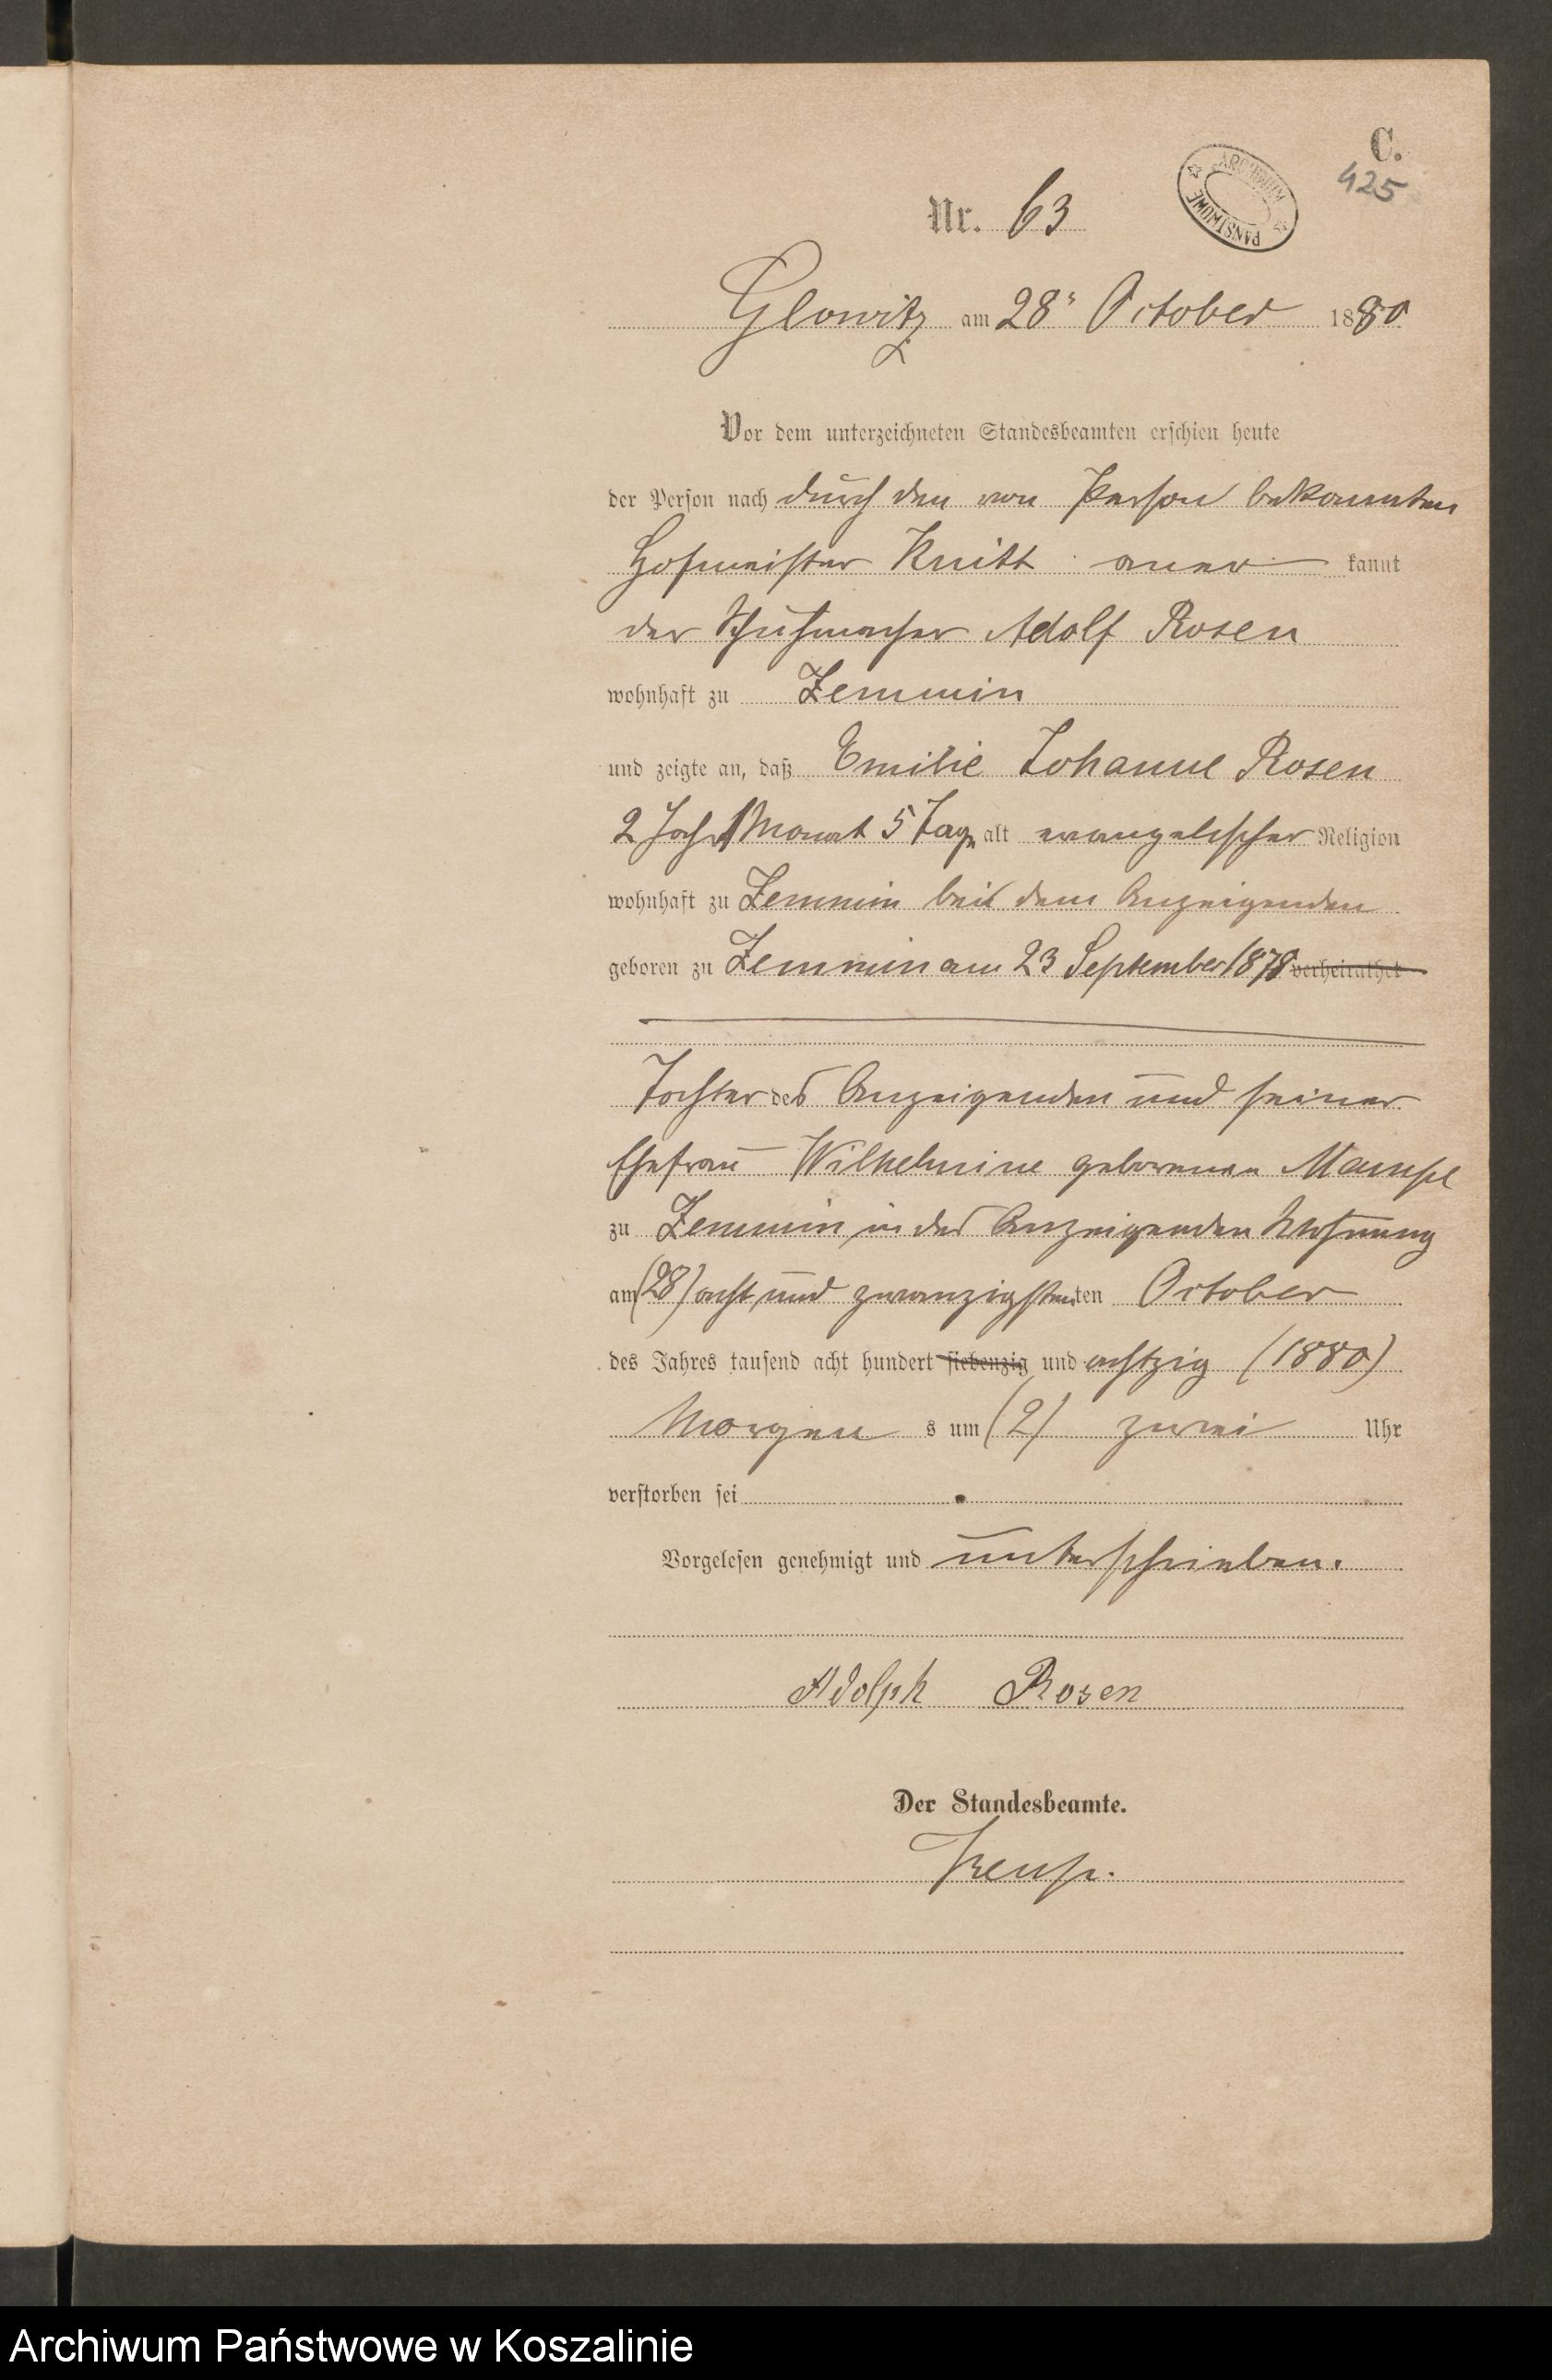 C.
425
ARCHIWUM
PAŃSTWOWE
Nr. 63
Glowitz am 28ᵗ October 1880
Vor dem unterzeichneten Standesbeamten erschien heute
der Person nach durch den von Person bekannten
Hofmeister Knitt aner kannt
der Schuhmacher Adolf Rosen
wohnhaft zu Zemmin
und zeigte an, daß Emilie Johanne Rosen
2 Jahr 1 Monat 5 Tage alt evangelischer Religion
wohnhaft zu Zemmin bei dem Anzeigenden
geboren zu Zemmin am 23 September 1878 verheirathet
Tochter des Anzeigenden und seiner
Ehefrau Wilhelmine geborenen
zu Zemmin in des Anzeigenden Wohnung
am (28) acht und zwanzigsten ten October
des Jahres tausend acht hundert siebenzig und achtzig (1880)
Morgen s um (2) zwei Uhr
verstorben sei
Vorgelesen genehmigt und unterschrieben.
Adolph Rosen
Der Standesbeamte.
Archiwum Państwowe w Koszalinie